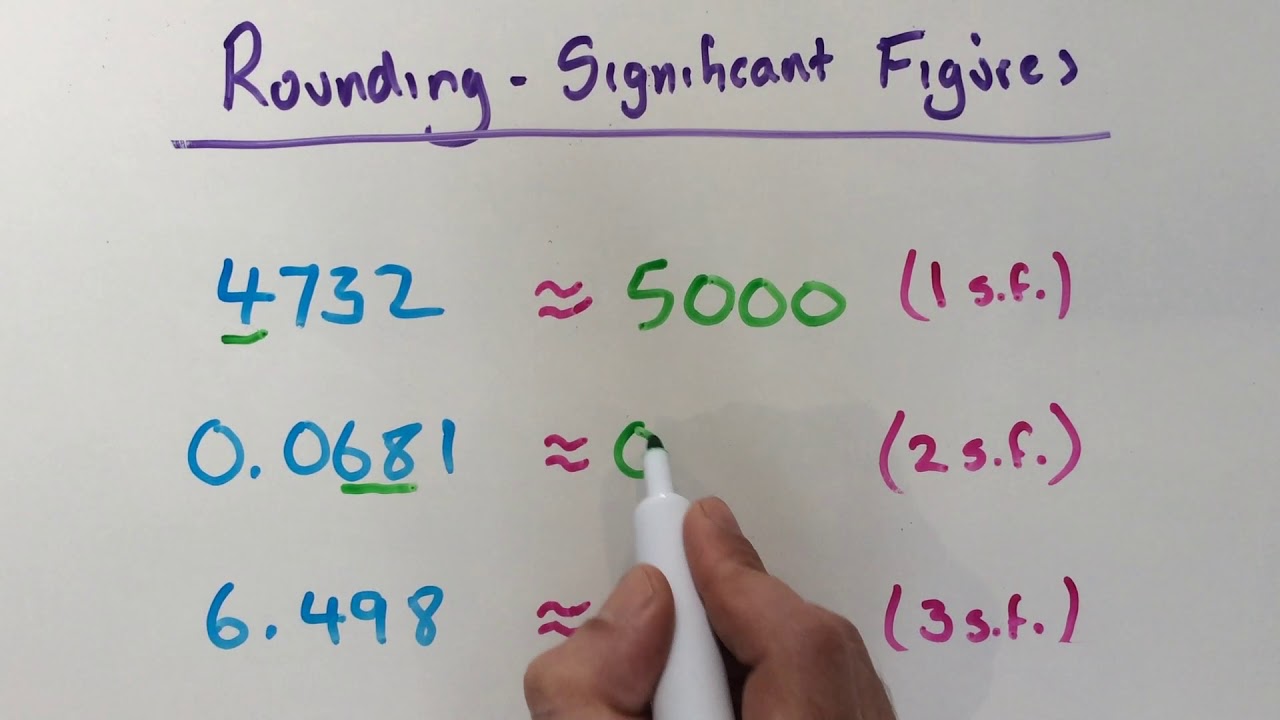 Rounding - Significant Figures
4732 ≈ 5000 (1 s.f.)
0.0681 ≈ 0 (2 s.f.)
6.498 ≈ (3 s.f.)